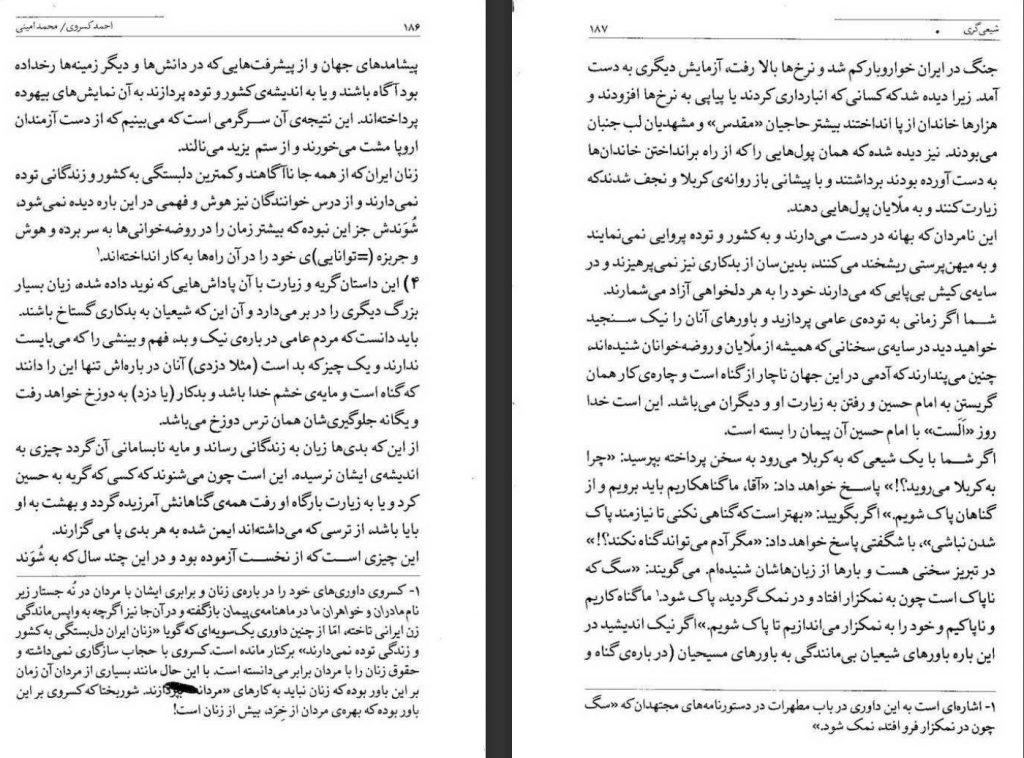 ۱۸۶
احمد کسروی/ محمد امینی
پیشامدهای جهان و از پیشرفت‌هایی که در دانش‌ها و دیگر زمینه‌ها رخداده
بود آگاه باشند و یا به اندیشه‌ی کشور و توده پردازند به آن نمایش‌های بیهوده
پرداخته‌اند. این نتیجه‌ی آن سرگرمی است که می‌بینیم که از دست آزمندان
اروپا مشت می‌خورند و از ستم یزید می‌نالند.
زنان ایران که از همه جا ناآگاهند و کمترین دلبستگی به کشور و زندگانی توده
نمی‌دارند و از درس خوانندگان نیز هوش و فهمی در این باره دیده نمی‌شود،
شُوَندش جز این نبوده که بیشتر زمان را در روضه‌خوانی‌ها به سر برده و هوش
و جربزه (=توانایی)ی خود را در آن راه‌ها به کار انداخته‌اند.۱
۴) این داستان گریه و زیارت با آن پاداش‌هایی که نوید داده شده، زیان بسیار
بزرگ دیگری را در بر می‌دارد و آن این که شیعیان به بدکاری گستاخ باشند.
باید دانست که مردم عامی در باره‌ی نیک و بد، فهم و بینشی را که می‌بایست
ندارند و یک چیز که بد است (مثلا دزدی) آنان در باره‌اش تنها این را دانند
که گناه است و مایه‌ی خشم خدا باشد و بدکار (یا دزد) به دوزخ خواهد رفت
و یگانه جلوگیری‌شان همان ترس دوزخ می‌باشد.
از این که بدی‌ها زیان به زندگانی رساند و مایه نابسامانی آن گردد چیزی به
اندیشه‌ی ایشان نرسیده. این است چون می‌شنوند که کسی که گریه به حسین
کرد و یا به زیارت بارگاه او رفت همه‌ی گناهانش آمرزیده گردد و بهشت به او
بایا باشد، از ترسی که می‌داشته‌اند ایمن شده به هر بدی پا می‌گزارند.
این چیزی است که از نخست آزموده بود و در این چند سال که به شُوَند
۱- کسروی داوری‌های خود را در باره‌ی زنان و برابری ایشان با مردان در نُه جستار زیر
نام مادران و خواهران ما در ماهنامه‌ی پیمان بازگفته و در آن‌جا نیز اگرچه به واپس‌ماندگی
زن ایرانی تاخته، امّا از چنین داوری یک‌سویه‌ای که گویا «زنان ایران دل‌بستگی به کشور
و زندگی توده نمی‌دارند» برکنار مانده است. کسروی با حجاب سازگاری نمی‌داشته و
حقوق زنان را با مردان برابر می‌دانسته است. با این حال مانند بسیاری از مردان آن زمان
بر این باور بوده که زنان نباید به کارهای «مردانه بپردازند. شوربختا که کسروی بر این
باور بوده که بهره‌ی مردان از خِرَد، بیش از زنان است!
شیعی‌گری
۱۸۷
جنگ در ایران خواروبار کم شد و نرخ‌ها بالا رفت، آزمایش دیگری به دست
آمد. زیرا دیده شد که کسانی که انبارداری کردند یا پیاپی به نرخ‌ها افزودند و
هزارها خاندان از پا انداختند بیشتر حاجیان «مقدس» و مشهدیان لب جنبان
می‌بودند. نیز دیده شده که همان پول‌هایی را که از راه برانداختن خاندان‌ها
به دست آورده بودند برداشتند و با پیشانی باز روانه‌ی کربلا و نجف شدند که
زیارت کنند و به ملّایان پول‌هایی دهند.
این نامردان که بهانه در دست می‌دارند و به کشور و توده پروایی نمی‌نمایند
و به میهن‌پرستی ریشخند می‌کنند، بدین‌سان از بدکاری نیز نمی‌پرهیزند و در
سایه‌ی کیش بی‌پایی که می‌دارند خود را به هر دلخواهی آزاد می‌شمارند.
شما اگر زمانی به توده‌ی عامی پردازید و باورهای آنان را نیک سنجید
خواهید دید در سایه‌ی سخنانی که همیشه از ملّایان و روضه‌خوانان شنیده‌اند،
چنین می‌پندارند که آدمی در این جهان ناچار از گناه است و چاره‌ی کار همان
گریستن به امام حسین و رفتن به زیارت او و دیگران می‌باشد. این است خدا
روز «اَلَست» با امام حسین آن پیمان را بسته است.
اگر شما با یک شیعی که به کربلا می‌رود به سخن پرداخته بپرسید: «چرا
به کربلا می‌روید؟!» پاسخ خواهد داد: «آقا، ما گناهکاریم باید برویم و از
گناهان پاک شویم.» اگر بگویید: «بهتر است که گناهی نکنی تا نیازمند پاک
شدن نباشی»، با شگفتی پاسخ خواهد داد: «مگر آدم می‌تواند گناه نکند؟!»
در تبریز سخنی هست و بارها از زبان‌هاشان شنیده‌ام. می‌گویند: «سگ که
ناپاک است چون به نمکزار افتاد و در نمک گردید، پاک شود.۱ ما گناه کاریم
و ناپاکیم و خود را به نمکزار می‌اندازیم تا پاک شویم.» اگر نیک اندیشید در
این باره باورهای شیعیان بی‌مانندگی به باورهای مسیحیان (در باره‌ی گناه و
۱- اشاره‌ای است به این داوری در باب مطهرات در دستورنامه‌های مجتهدان که «سگ
چون در نمکزار فرو افتد، نمک شود.»